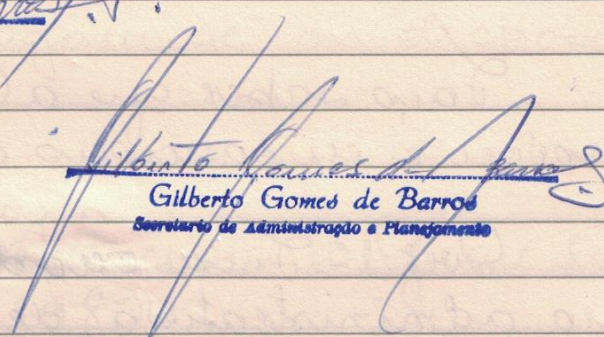 Gilberto Gomes de Barros
Gilberto Gomes de Barros
Secretario de Administração e Planejamento